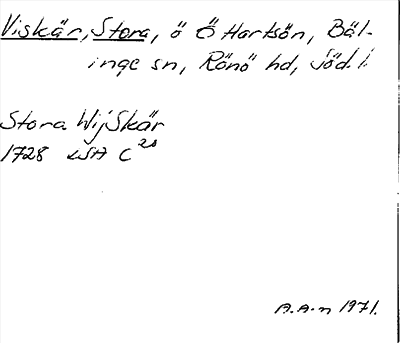 Viskär, Stora, ö Ö Hartsön, Bäl-
inge sn, Rönö hd, Söd.l.
Stora WijSkär
1728 LSA C 20
A.A-n 1971.